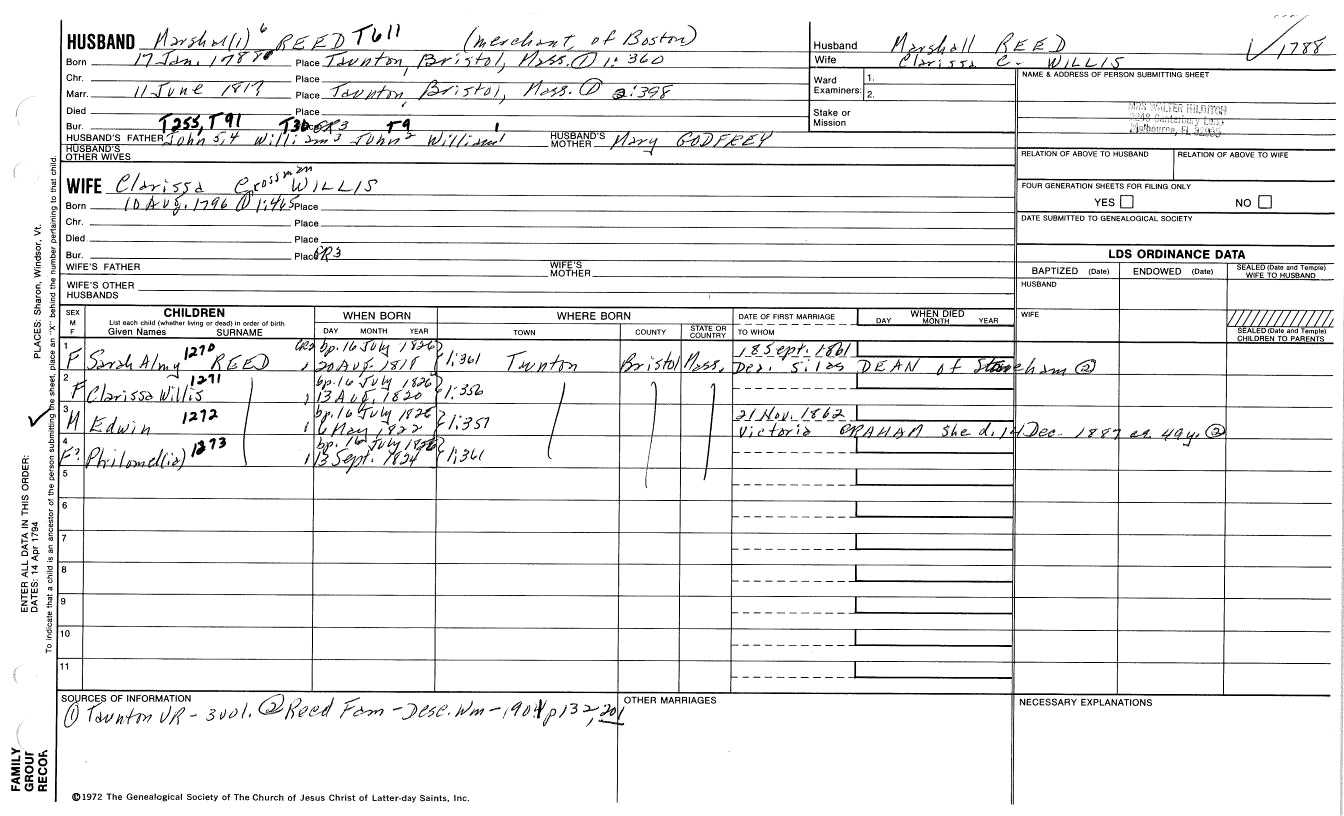 HUSBAND Marshal(l) 6 REED T611 (merchant, of Boston)
Born 17 Jan. 1788 Place Taunton, Bristol, Mass. ① 1:360
Chr. Place
Marr. 11 June 1817 Place Taunton, Bristol, Mass. ① 2:398
Died Place
Bur. T255, T91 T30 GR3 T9 1
HUSBAND'S FATHER John 5,4 William 3 John 2 William 1 HUSBAND'S MOTHER Mary GODFREY
HUSBAND'S OTHER WIVES
Husband Marshall REED 1788
Wife Clarissa C. WILLIS
Ward Examiners: 1.
2.
Stake or Mission
NAME & ADDRESS OF PERSON SUBMITTING SHEET
MRS WALTER HILDITCH
Canterbury Lane
Melbourne, FL
RELATION OF ABOVE TO HUSBAND RELATION OF ABOVE TO WIFE
FOUR GENERATION SHEETS FOR FILING ONLY
YES NO
DATE SUBMITTED TO GENEALOGICAL SOCIETY
WIFE Clarissa Crossman WILLIS
Born 10 Aug. 1796 ① 1:465 Place
Chr. Place
Died Place
Bur. Place GR3
WIFE'S FATHER WIFE'S MOTHER
WIFE'S OTHER HUSBANDS
LDS ORDINANCE DATA
BAPTIZED (Date) ENDOWED (Date) SEALED (Date and Temple) WIFE TO HUSBAND
HUSBAND
WIFE
SEALED (Date and Temple) CHILDREN TO PARENTS
SEX M F CHILDREN WHEN BORN WHERE BORN DATE OF FIRST MARRIAGE WHEN DIED
List each child (whether living or dead) in order of birth
Given Names SURNAME DAY MONTH YEAR TOWN COUNTY STATE OR COUNTRY TO WHOM DAY MONTH YEAR
1 1270 GR2 bp. 16 July 1826 18 Sept. 1861
F Sarah Almy REED 1 20 Aug. 1818 1:361 Taunton Bristol Mass. Dea. Silas DEAN of Stoneham ②
2 1271 bp. 16 July 1826
F Clarissa Willis 1 13 Aug. 1820 1:356
3 1272 bp. 16 July 1826 21 Nov. 1862
M Edwin 1 6 May 1822 1:357 Victoria GRAHAM She d. 14 Dec. 1887 ae. 49y. ②
4 1273 bp. 16 July 1826
F? Philomel(ia) 1 13 Sept. 1824 1:361
5
6
7
8
9
10
11
SOURCES OF INFORMATION
① Taunton VR - 3 vol. ② Reed Fam - Desc. Wm - 1901 p 132, 201
OTHER MARRIAGES
NECESSARY EXPLANATIONS
©1972 The Genealogical Society of The Church of Jesus Christ of Latter-day Saints, Inc.
FAMILY GROUP RECOR
ENTER ALL DATA IN THIS ORDER:
DATES: 14 Apr 1794
PLACES: Sharon, Windsor, Vt.
To indicate that a child is an ancestor of the person submitting the sheet, place an "X" behind the number pertaining to that child.